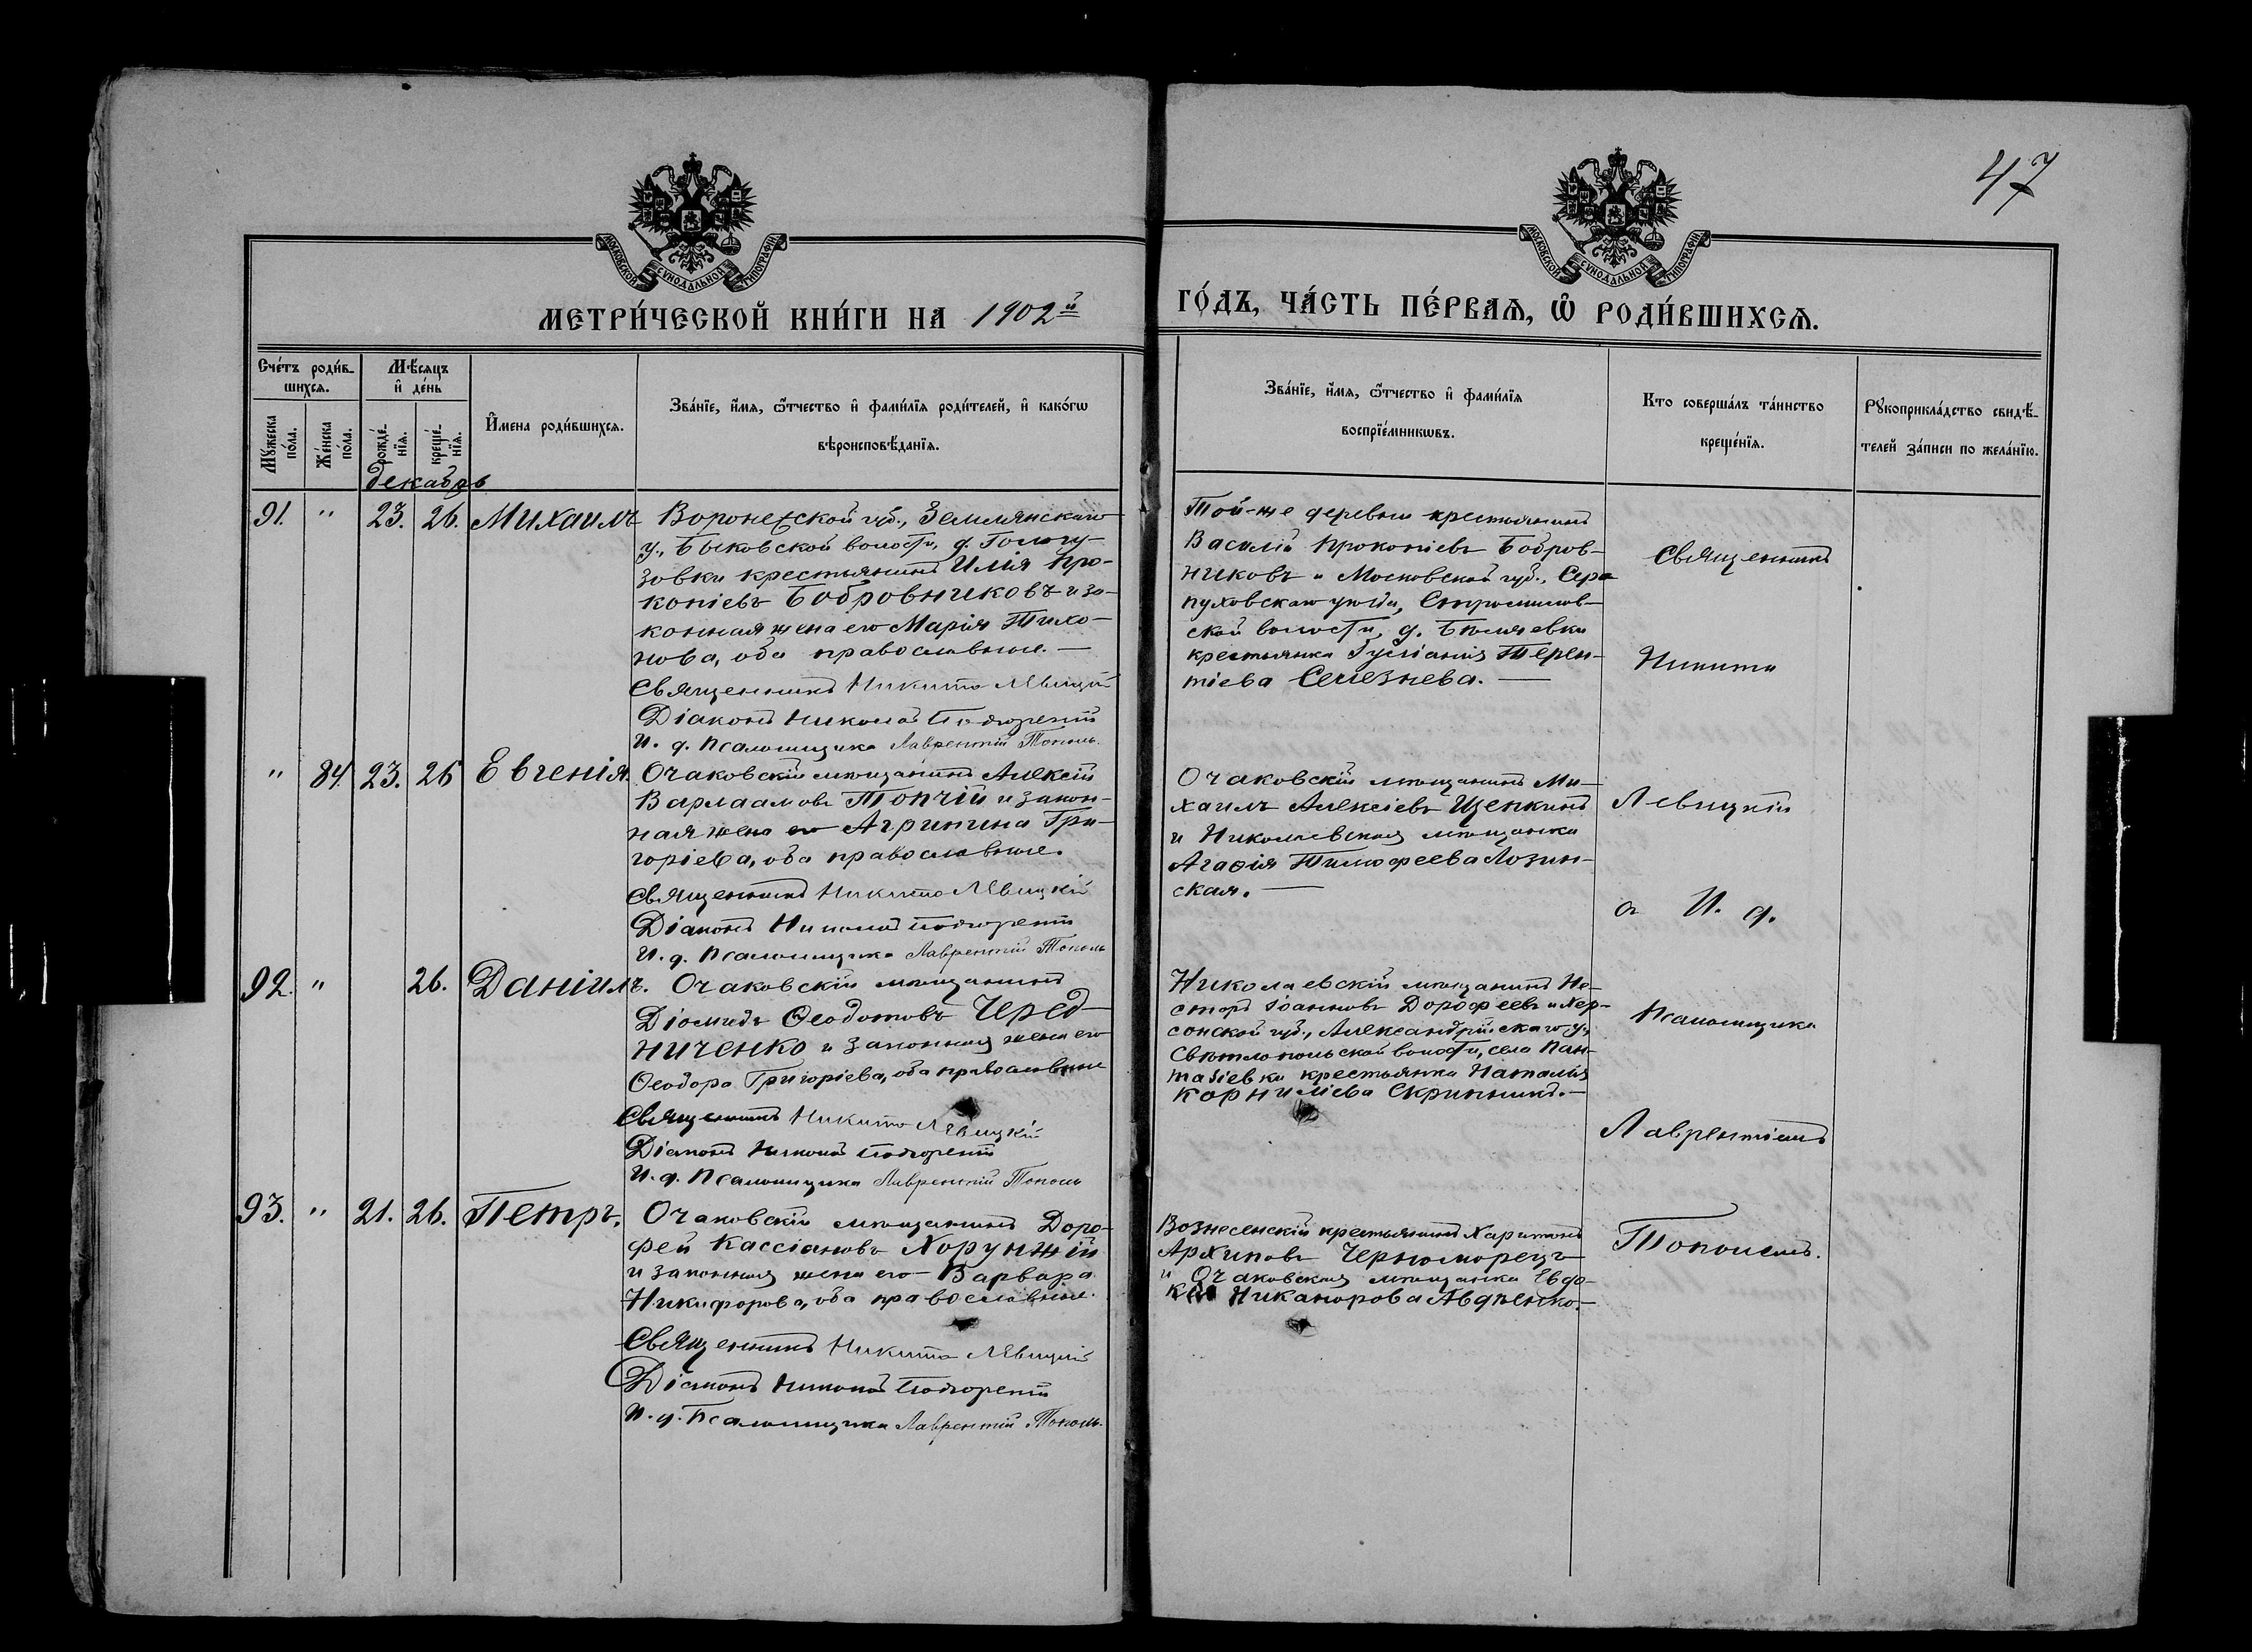 47
МОСКОВСКОЙ СѴНОДАЛЬНОЙ ТИПОГРАФІИ
МОСКОВСКОЙ СѴНОДАЛЬНОЙ ТИПОГРАФІИ
МЕТРИ́ЧЕСКОЙ КНИ́ГИ НА 1902й
ГО́ДЪ, ЧА́СТЬ ПЕ́РВАѦ, Ѡ҆ РОДИ́ВШИХСѦ.
Сче́тъ роди́в-
шихсѧ.
Мѣ́сѧцъ
и҆ де́нь
Мꙋ́жеска по́ла.
Же́нска по́ла.
рожде́-нїѧ.
креще́-нїѧ.
И҆мена роди́вшихсѧ.
Зва́нїе, и҆́мѧ, ѻ҆́тчество и҆ фами́лїѧ роди́телей, и҆ како́гѡ
вѣроисповѣ́данїѧ.
Зва́нїе, и҆́мѧ, ѻ҆́тчество и҆ фами́лїѧ
воспрїе́мникѡвъ.
Кто соверша́лъ та́инство
креще́нїѧ.
Рꙋкоприкла́дство свидѣ́-
телей за́писи по жела́нїю.
декабрь
91. " 23. 26. Михаилъ
Воронежской губ., Землянскаго
у., Быковской волости, д.
зовки крестьянинъ Илія Про-
копіевъ Бобровниковъ и за-
конная жена его Марія Тихо-
нова, оба православные. —
Священникъ Никита Левицкій
Діаконъ Николай
И. д. Псаломщика Лаврентій Тополь.
Той-же деревни крестьянинъ
Василій Прокопіевъ Бобров-
никовъ и Московской губ., Сер-
пуховскаго уѣзда,
ской волости, д.
крестьянка Терен-
тіева Селезнева. —
Священникъ
Никита
" 84. 23. 26 Евгенія.
Очаковскій мѣщанинъ Алексій
Варлаамовъ Топчій и закон-
ная жена его Агрипина Гри-
горіева, оба православные.
Священникъ Никита Левицкій
Діаконъ Николай
И. д. Псаломщика Лаврентій Тополь
Очаковскій мѣщанинъ Ми-
хаилъ Алексіевъ Щепкинъ
и Николаевская мѣщанка
Агаѳія Тимофеева Лозин-
ская. —
Левицкій
съ И. д.
92. " 26. Даніилъ.
Очаковскій мѣщанинъ
Діомидъ Ѳеодотовъ Черед-
ниченко и законная жена его
Ѳеодора Григоріева, оба православные
Священникъ Никита Левицкій
Діаконъ Николай
И. д. Псаломщика Лаврентій Тополь
Николаевскій мѣщанинъ Не-
сторъ Іоанновъ Дорофеевъ и Хер-
сонской губ., Александрійскаго у.,
Свѣтлопольской волости, села Пан-
тазіевки крестьянка Наталія
Корниліева Скрипникъ. —
Псаломщика
Лаврентіемъ
93. " 21. 26. Петръ.
Очаковскій мѣщанинъ Доро-
фей Кассіановъ Хорунжій
и законная жена его Варвара
Никифорова, оба православные.
Священникъ Никита Левицкій
Діаконъ Николай
И. д. Псаломщика Лаврентій Тополь.
Вознесенскій крестьянинъ Харитонъ
Архиповъ Черноморецъ
и Очаковская мѣщанка Евдо-
кія Никанорова Авдѣенко. —
Тополемъ.